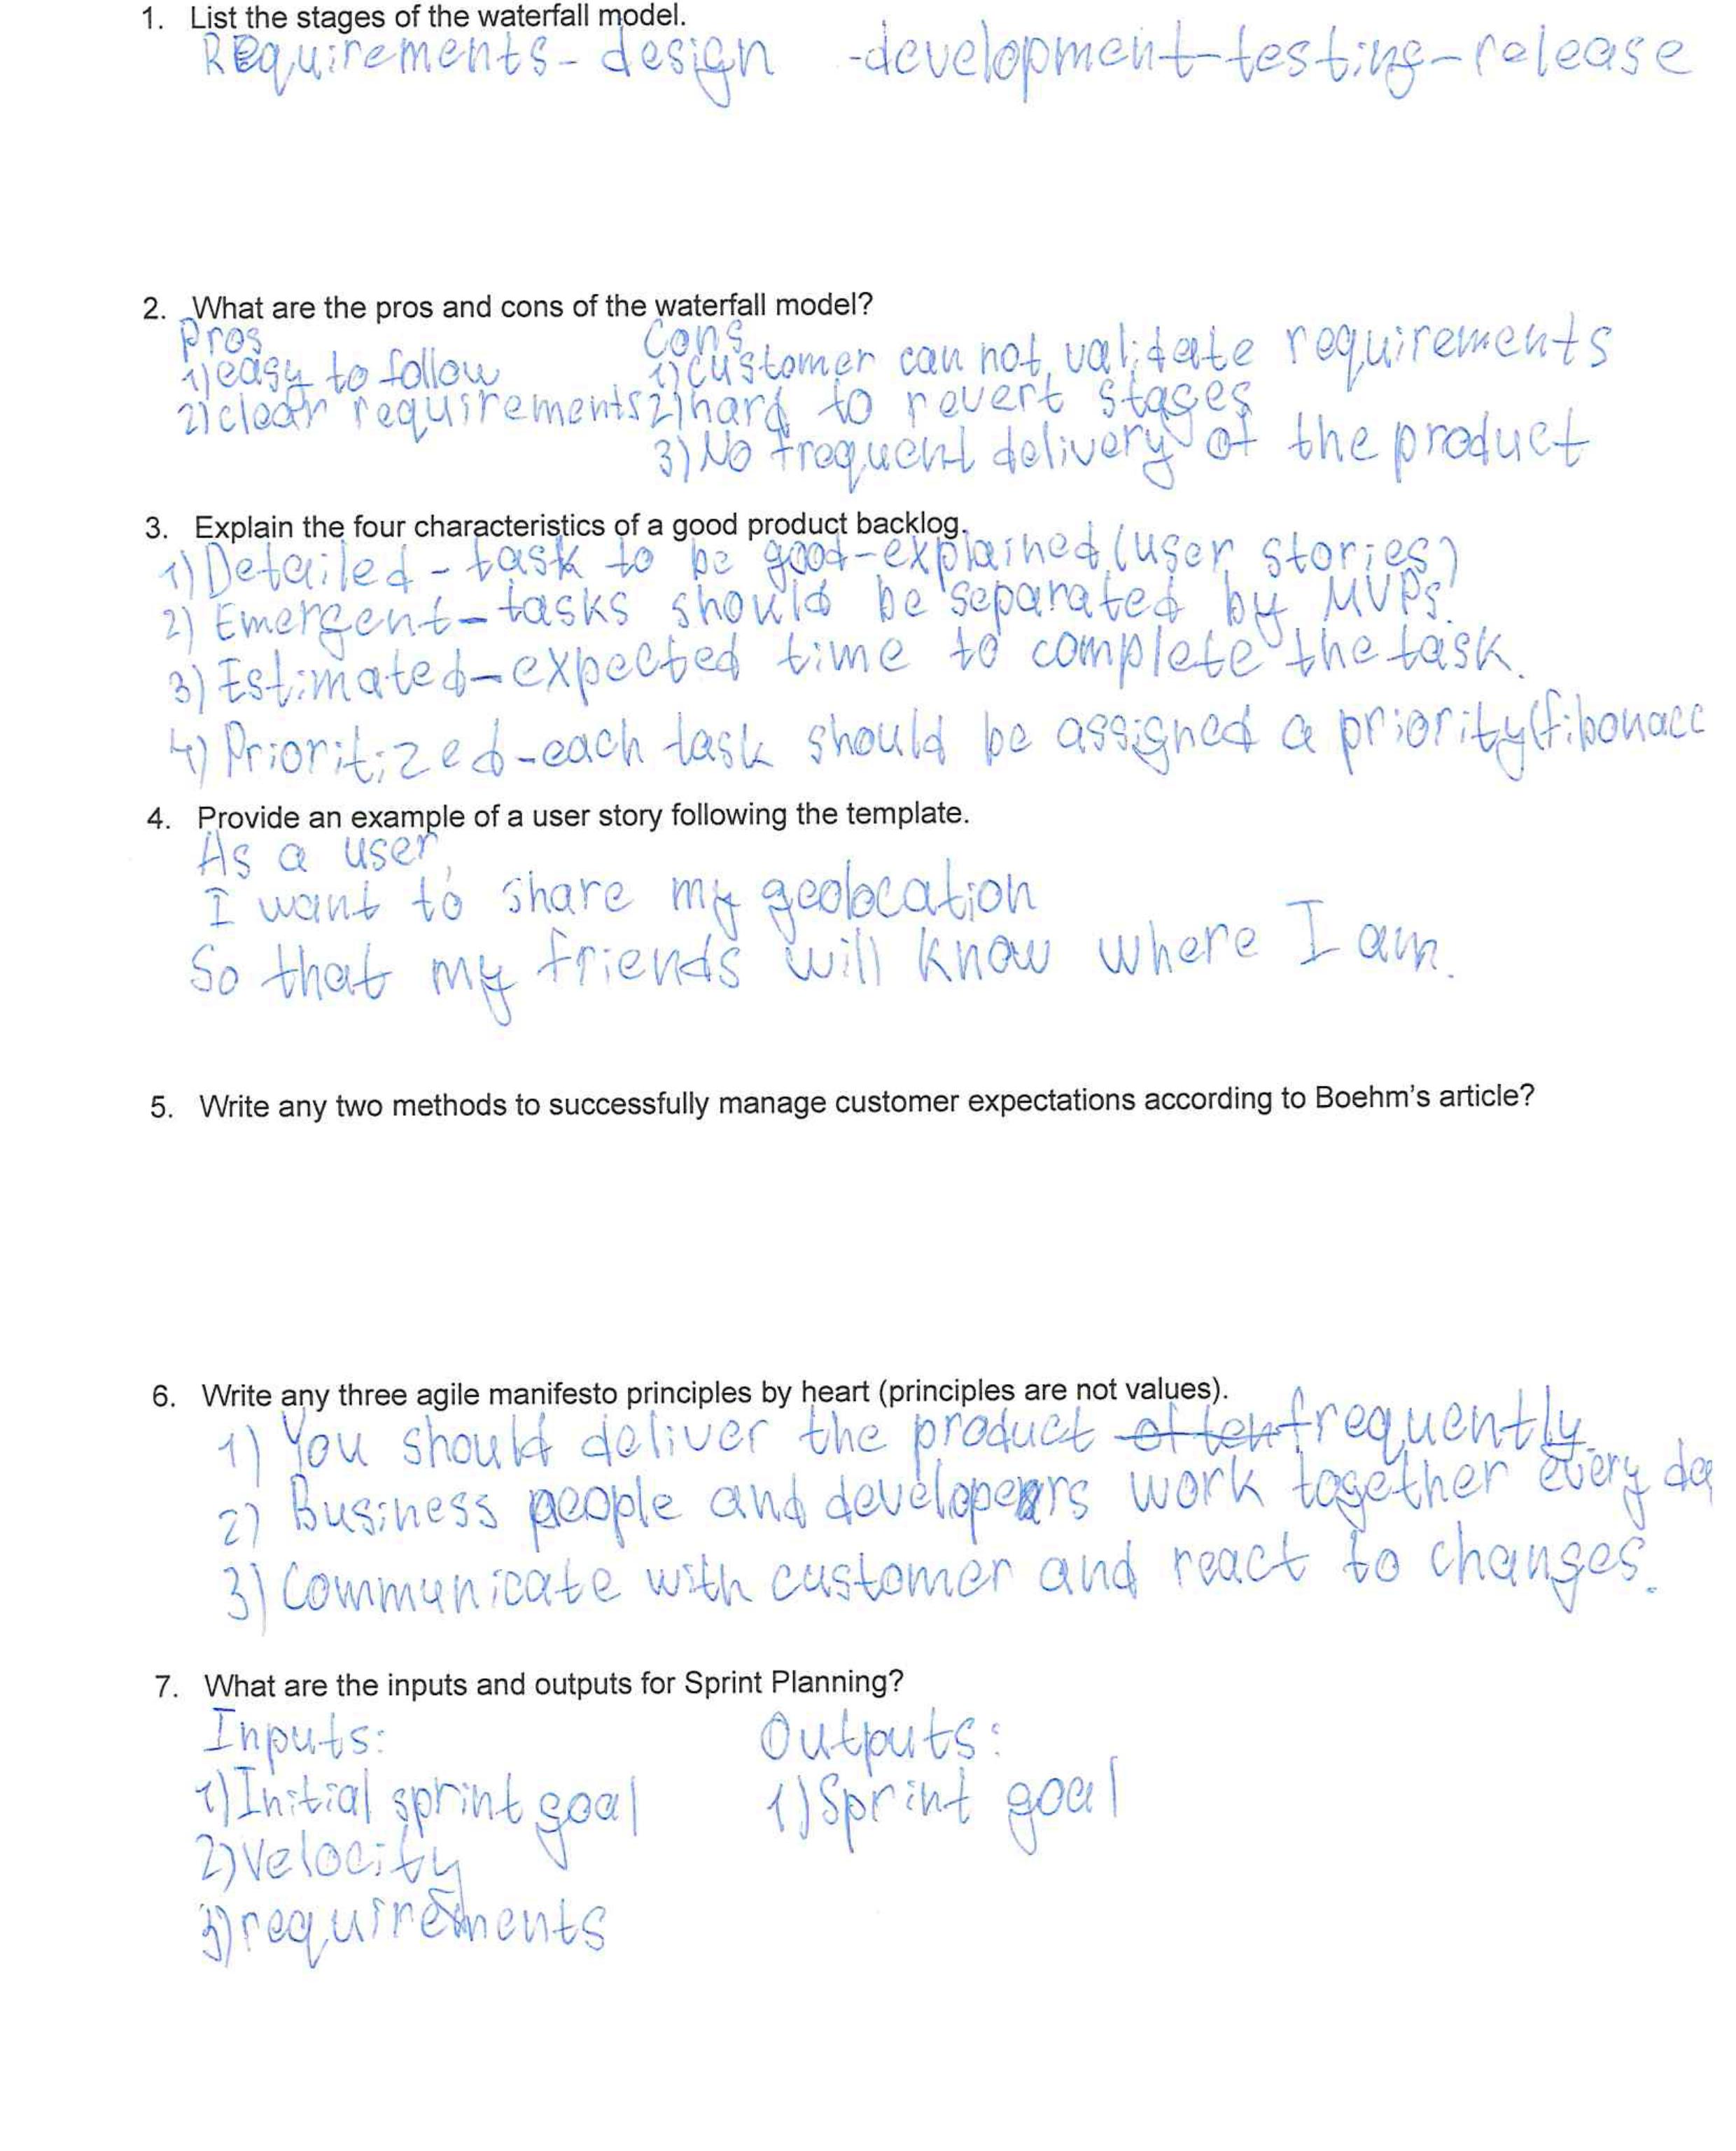 1. List the stages of the waterfall model.
Requirements - design -development-testing-release
2. What are the pros and cons of the waterfall model?
Pros Cons
1) easy to follow 1) customer can not validate requirements
2) clear requirements 2) hard to revert stages
3) No frequent delivery of the product
3. Explain the four characteristics of a good product backlog.
1) Detailed - task to be good-explained (user stories)
2) Emergent - tasks should be separated by MVPs.
3) Estimated - expected time to complete the task.
4) Prioritized - each task should be assigned a priority (fibonacc
4. Provide an example of a user story following the template.
As a user,
I want to share my geolocation
So that my friends will know where I am.
5. Write any two methods to successfully manage customer expectations according to Boehm's article?
6. Write any three agile manifesto principles by heart (principles are not values).
1) You should deliver the product often frequently.
2) Business people and developers work together every da
3) Communicate with customer and react to changes.
7. What are the inputs and outputs for Sprint Planning?
Inputs: Outputs:
1) Initial sprint goal 1) Sprint goal
2) Velocity
3) requirements